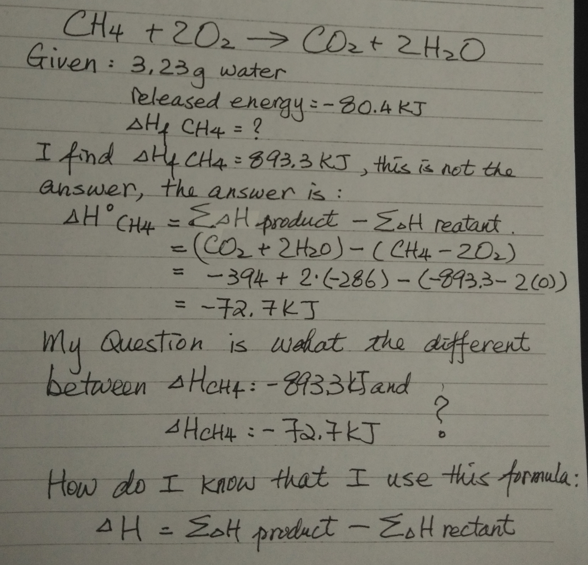 CH4 + 2O2 → CO2 + 2H2O
Given : 3,23g water
released energy = -80.4 KJ
ΔHf CH4 = ?
I find ΔHf CH4 = 893.3 KJ, this is not the
answer, the answer is :
ΔH° CH4 = ΣΔH product - ΣΔH reatant.
= (CO2 + 2H2O) - (CH4 - 2O2)
= -394 + 2·(-286) - (-893.3 - 2(0))
= -72.7KJ
My Question is wahat the different
between ΔHCH4: -893.3 KJ and
ΔHCH4 : -72.7KJ ?
How do I know that I use this formula:
ΔH = ΣΔH product - ΣΔH rectant